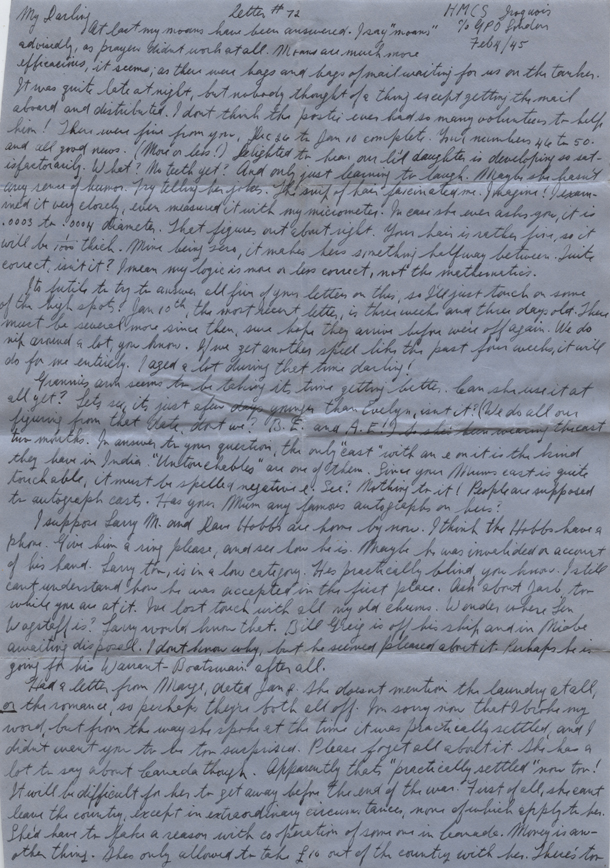 My Darling Letter # 72 HMCS Iroquois
% GPO London
Feb 4/45
At last my moans have been answered. I say "moans"
advisedly, as prayers didn't work at all. Moans are much more
efficacious, it seems, as there were bags and bags of mail waiting for us on the tanker.
It was quite late at night, but nobody thought of a thing except getting the mail
aboard and distributed. I dont think the postie ever had so many volunteers to help
him! There were five from you, Dec 26 to Jan 10 complet. Your numbers 46 to 50.
and all good news. (More or less!) Delighted to hear our li'l daughter is developing so sat-
isfactorily. What? No teeth yet? And only just learning to laugh. Maybe she hasn't
any sense of humor. Try telling her jokes. The snip of hair fascinated me. Imagine! I exam-
ined it very closely, even measured it with my micrometer. In case she ever asks you, it is
.0003 to .0004 diameter. That figures out about right. Your hair is rather fine, so it
will be thick. Mine being zero, it makes hers something halfway between. Quite
correct, isn't it? I mean my logic is more or less correct, not the mathematics.
Its futile to try to answer all five of your letters on this, so I'll just touch on some
of the high spots! Jan 10th, the most recent letter, is three weeks and three days old. There
must be several more since then, sure hope they arrive before we're off again. We do
nip around a lot, you know. If we get another spell like the past four weeks, it will
do for me entirely. I aged a lot during that time darling!
Grannies arm seems to be taking its time getting better. Can she use it at
all yet? Lets see, its just a few days younger than Evelyn, isn't it? (We do all our
figuring from that date, dont we? (B.E. and A.E.! she been wearing the cast
two months. In answer to your question, the only "cast" with an e on it is the kind
they have in India. "Untouchables" are one of them. Since your Mums cast is quite
touchable, it must be spelled negative e. See? Nothing to it! People are supposed
to autograph casts. Has your Mum any famous autographs on hers?
I suppose Larry M. and Dave Hobbs are home by now. I think the Hobbs have a
phone. Give him a ring please, and see how he is. Maybe he was invalided on account
of his hand. Larry too, is in a low category. Hes practically blind you know. I still
cant understand how he was accepted in the first place. Ask about Jarb, too
while you are at it. Ive lost touch with all my old chums. Wonder where Lin
Wagstaff is? Larry would know that. Bill Greig is off his ship and in Niobe
awaiting disposal. I don't know why, but he seemed pleased about it. Perhaps he is
going for his Warrant-Boatswain after all.
Had a letter from Marge, dated Jan 9. She doesnt mention the laundry at all,
or the romance, so perhaps theyre both all off. Im sorry now that I broke my
word, but from the way she spoke at the time it was practically settled, and I
didn't want you to be too surprised. Please forget all about it. She has a
lot to say about Canada though. Apparently thats "practically settled" now too!
It will be difficult for her to get away before the end of the war. First of all, she cant
leave the country, except in extraordinary circumstances, none of which apply to her.
She'd have to fake a reason with cooperation of someone in Canada. Money is an-
other thing. Shes only allowed to take £10 out of the country with her. There's to